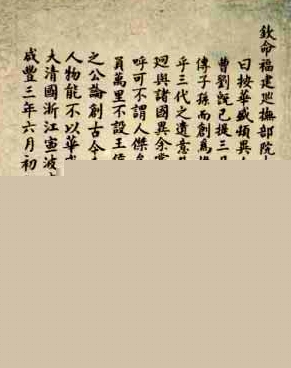 欽命福建廵撫部院
曰按華盛頓異人
曹劉既已提三
傳子孫而創爲
乎三代之遺意
廻與諸國異余
呼可不謂人傑
員萬里不設王
之公論創古今
人物能不以華
大清國浙江寧波
咸豐三年六月初